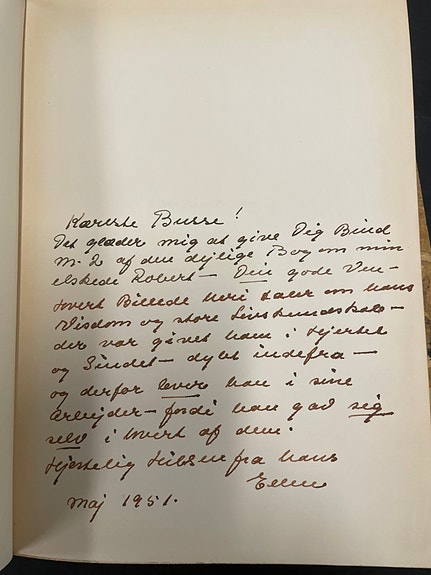 Kæreste Busse!
Det glæder mig at give Dig Bind
Nr. 2 af den dejlige Bog om min
elskede Robert – Din gode Ven –
Hvert Billede heri taler om hans
Visdom og store Livskundskab –
der var givet ham i Hjertet
og Sindet – dybt indefra –
og derfor lever han i sine
Arbejder – fordi han gav sig
selv i hvert af dem.
Hjertelig Hilsen fra hans
Ellen
Maj 1951.